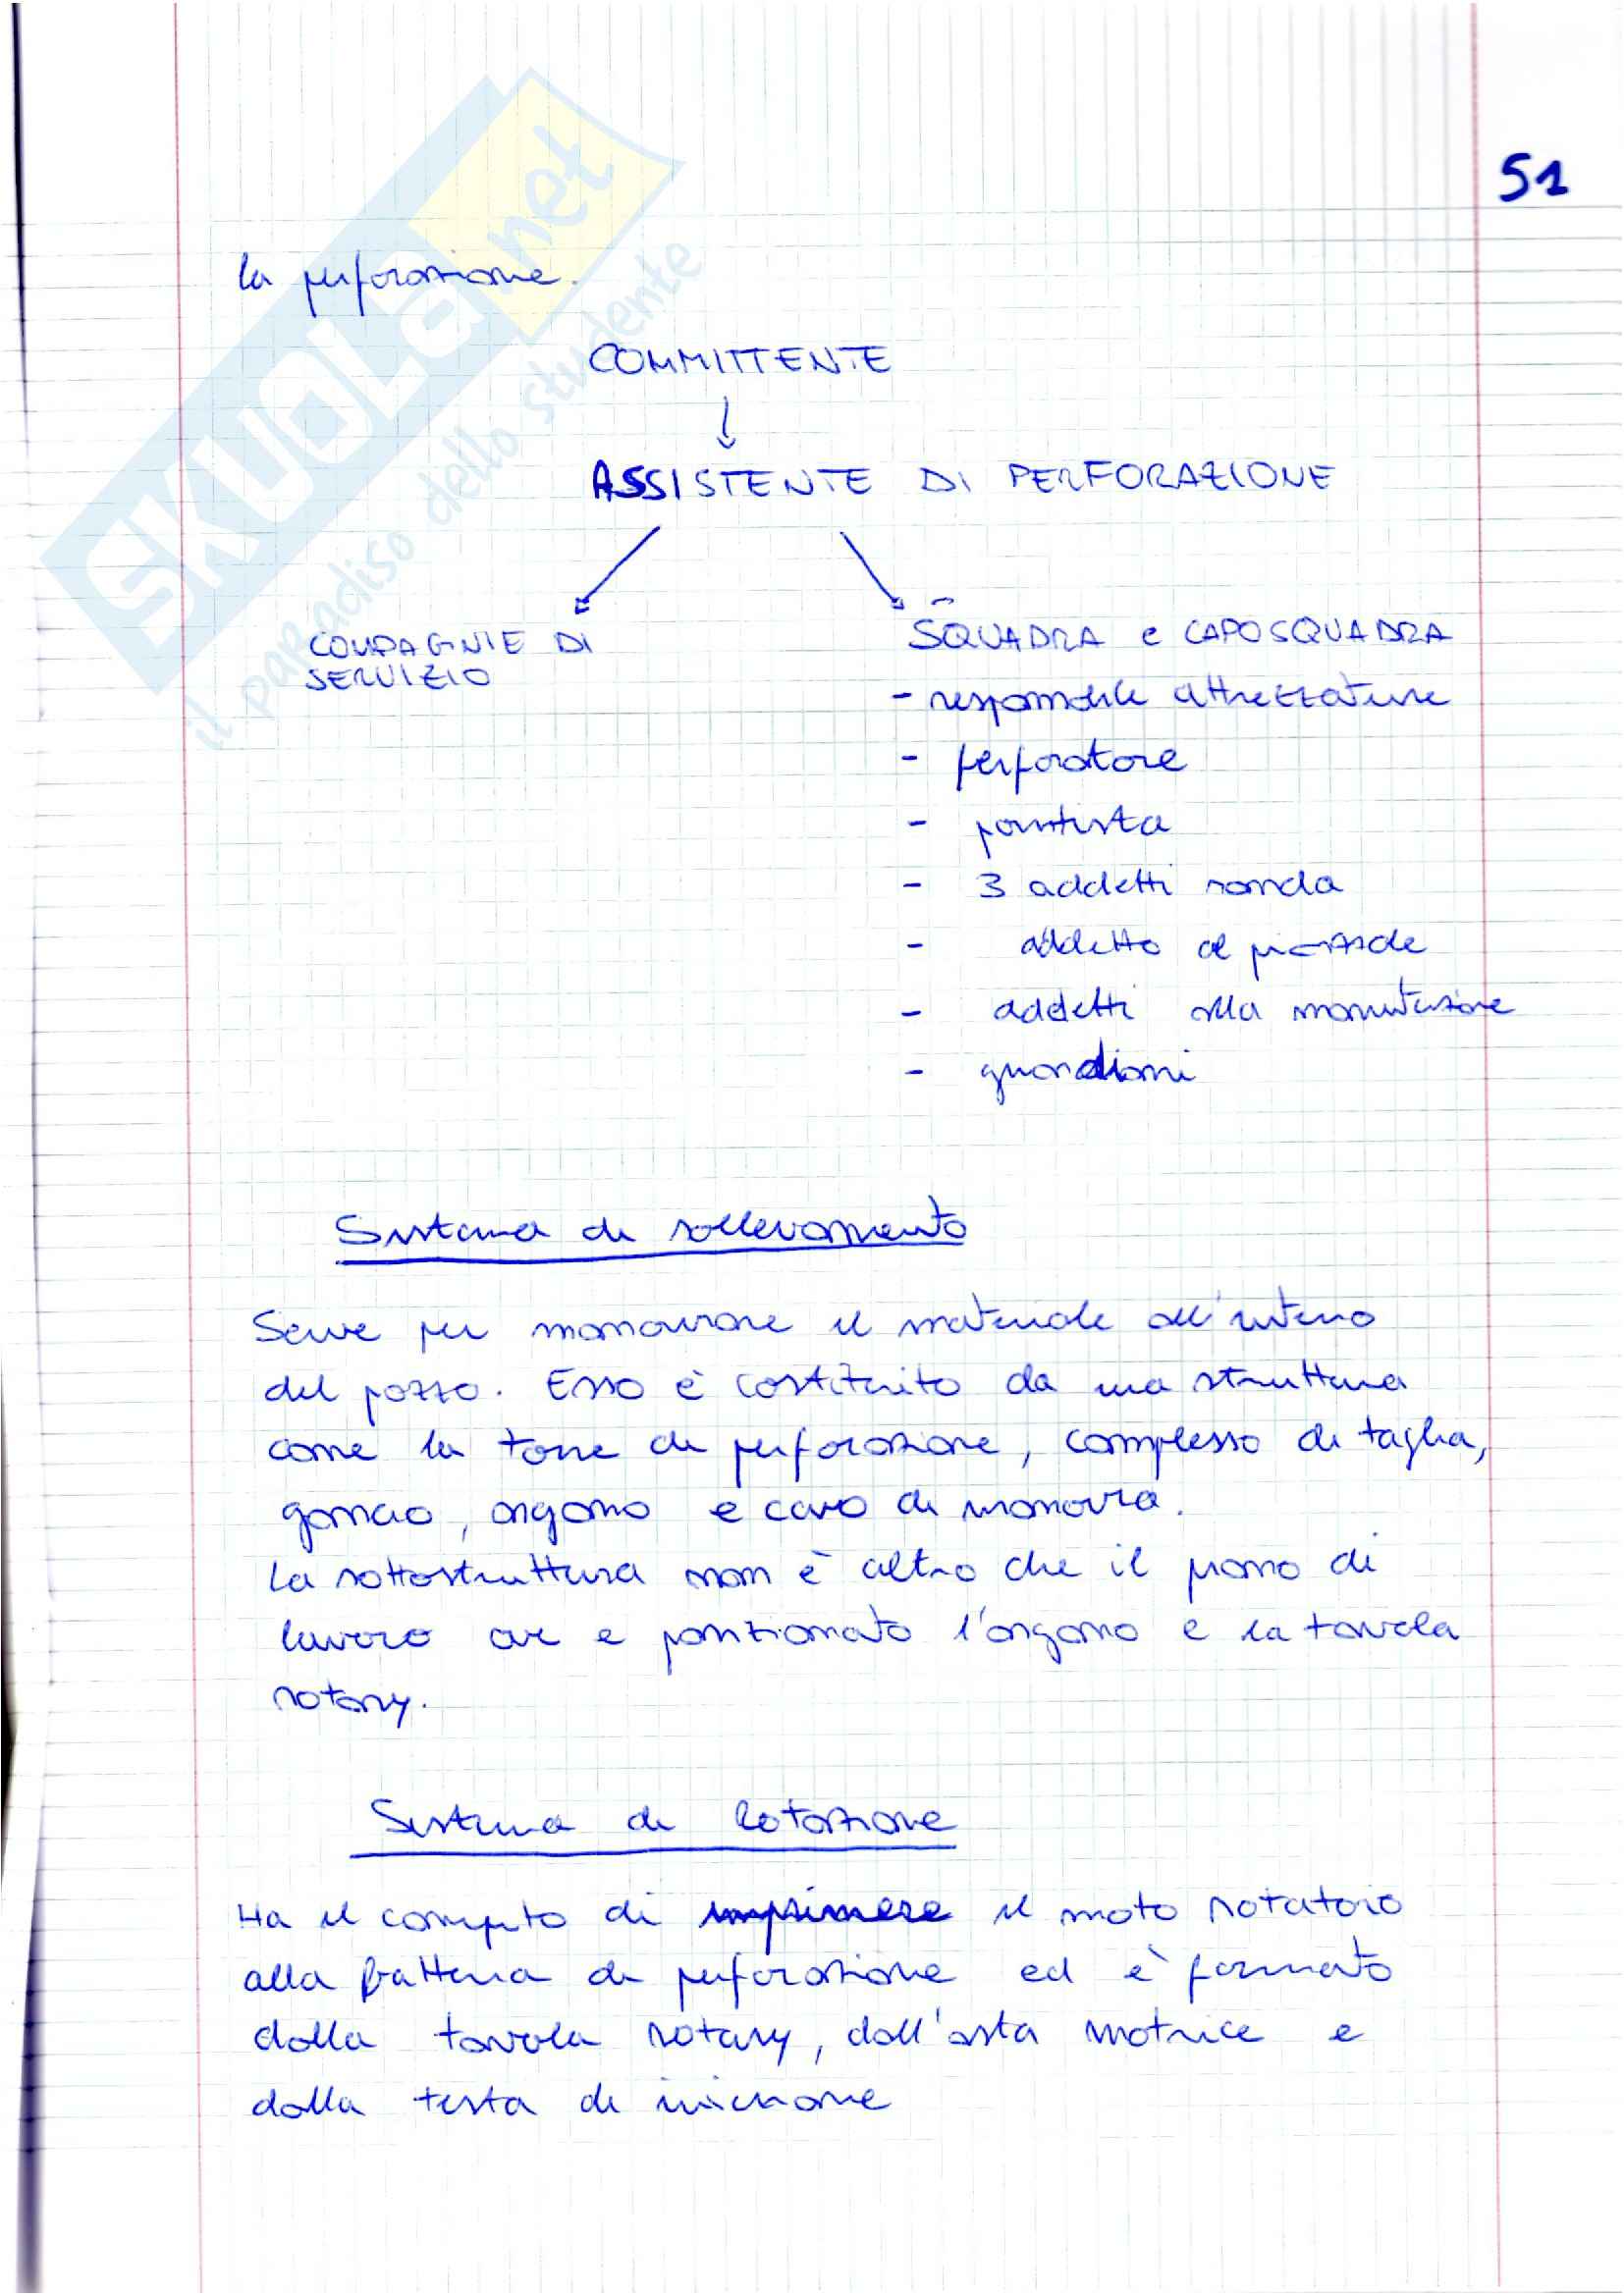 51
SKUOLA.net
il paradiso dello studente
la perforazione.
COMMITTENTE
ASSISTENTE DI PERFORAZIONE
COMPAGNIE DI
SERVIZIO
SQUADRA e CAPOSQUADRA
- responsabile attrezzature
- perforatore
- pontista
- 3 addetti sonda
- addetto al piazzale
- addetti alla manutenzione
- guardiani
Sistema di sollevamento
Serve per manovrare il materiale all'interno
del pozzo. Esso è costituito da una struttura
come la torre di perforazione, complesso di taglia,
gancio, argano e cavo di manovra.
La sottostruttura non è altro che il piano di
lavoro ove e posizionato l'argano e la tavola
rotary.
Sistema di Rotazione
Ha il compito di imprimere il moto rotatorio
alla batteria di perforazione ed è formato
dalla tavola rotary, dall'asta motrice e
dalla testa di iniezione